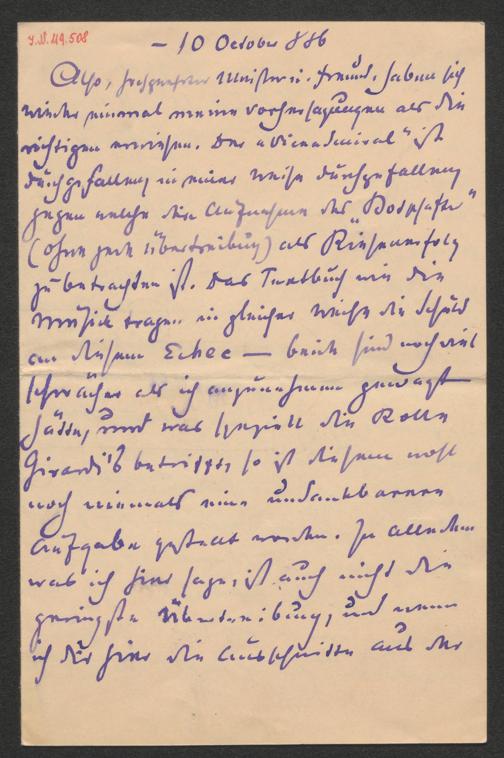 I.N. 49.508
– 10 October 886
Also, hochgeehrter Meister u. Freund, haben sich
wieder einmal meine Vorhersagungen als die
richtigen erwiesen. Der „Viceadmiral" ist
durchgefallen, in einer Weise durchgefallen,
gegen welche die Aufnahme des „Botschafter"
(ohne jede Übertreibung) als Riesenerfolg
zu betrachten ist. Das Textbuch wie die
Musik tragen in gleicher Weise die Schuld
an diesem Echec — beide sind noch viel
schwächer als ich anzunehmen gewagt
hätte, und was speziell die Rolle
Girardi's betrifft, so ist diesem wohl
noch niemals eine undankbarere
Aufgabe gestellt worden. In alledem
was ich hier sage, ist auch nicht die
geringste Übertreibung, und wenn
ich Dir hier die Ausschnitte aus der